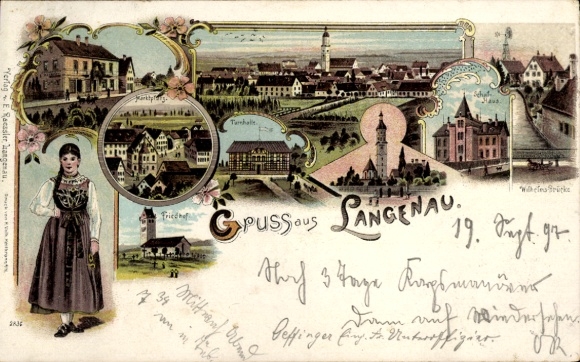 Verlag v. E. Rässler, Langenau.
Marktplatz.
Turnhalle.
Schul-
Haus.
Wilhelms Brücke
Friedhof
Gruss aus Langenau.
19. Sept. 97
Noch 3 Tage Korpsmanöver
dann auf Wiedersehen.
Oeffinger Einj. Fr. Unteroffizier.
2836